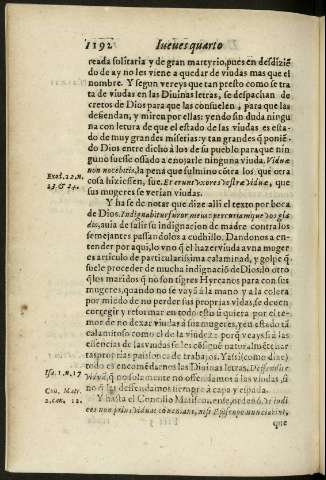 1192 Iueues quarto
reada solitaria y de gran martyrio, pues en desdizié
do de ay no les viene a quedar de viudas mas que el
nombre. Y segun vereys que tan presto como se tra
ta de viudas en las Diuinas letras, se despachan de
cretos de Dios para que las consuelen, para que las
defiendan, y miren por ellas: yendo sin duda ningu
na con letura de que el estado de las viudas es esta-
do de muy grandes miserias: y tan grandes q̃ ponié
do Dios entre dicho à los de su pueblo para que nin
guno fuesse ossado a enojarle ninguna viuda. Viduæ
Exod. 22. n. 23. & 24.
non nocebitis, la pena que fulmino cõtra los que otra
cosa hiziessen, fue. Et erunt vxores vestræ viduæ, que
sus mugeres se verian viudas.
Y ha se de notar que dize alli el texto por boca
de Dios. Indignabitur furor meus & percutiam que vos gla
dio, auia de salir su indignacion de madre contra los
semejantes passandolos a cudhillo. Dandonos a en-
tender por aqui, lo vno q̃ el hazer viuda a vna muger
es articulo de particularissima calamidad, y golpe q̃
suele proceder de mucha indignació de Dios: lo otro
q̃ los maridos q̃ no son tigres Hyrcanos para con sus
mugeres, quando no se vaya à la mano y a la colera
por miedo de no perder sus proprias vidas, se deuen
corregir y reformar en todo esto si quiera por el te-
mor de no dexar viudas à sus mugeres, y en estado tã
calamitoso como el de la viudez
tas proprias passiones de trabajos. Y assi (como dixe)
Isa. 1. n. 17
todo es encomédarnos las Diuinas letras. Defendite
viduã, q̃ no solamente no offendamos à las viudas, si
no q̃ las defendamos siempre à capa y espada.
Con. Matis. 2. can. 12.
Y hasta el Concilio Matiscõnense, ordenó
que